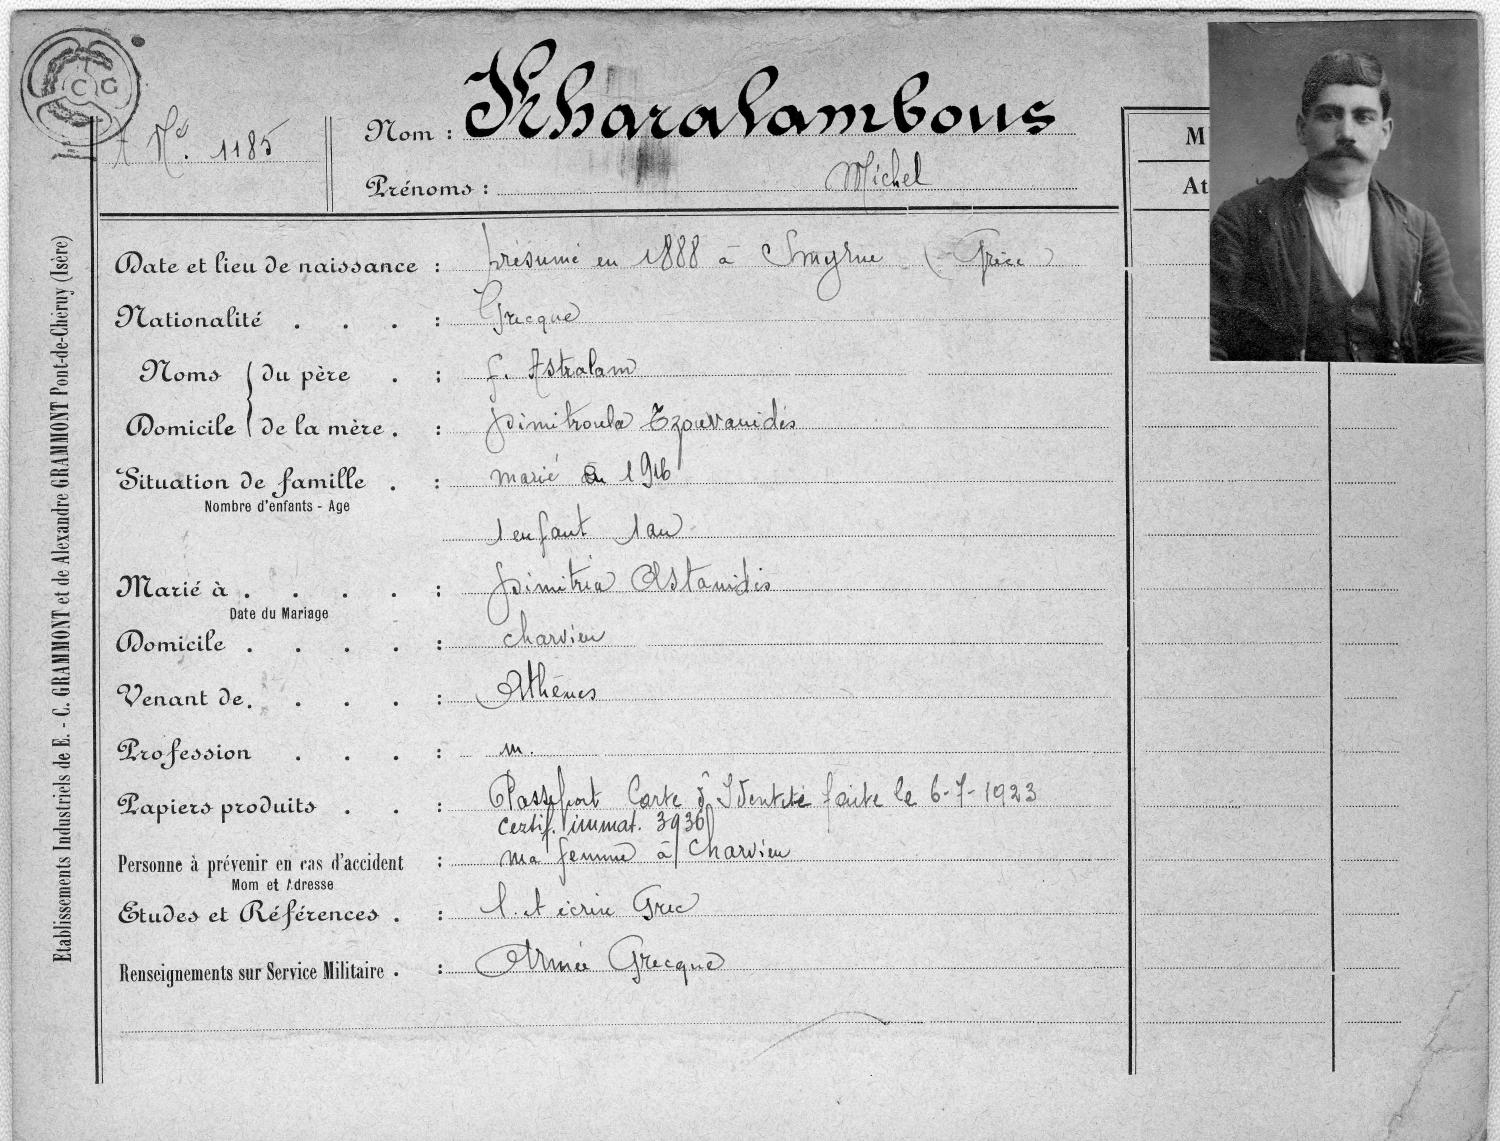 C G
Nº. 1185
Nom : Kharalambous
Prénoms : Michel
M
At
Date et lieu de naissance : présumé en 1888 à Smyrne (Grèce)
Nationalité . . . : Grecque
Noms du père . : f. Astralam
Domicile de la mère . : Dimitroula Tzouvanidés
Situation de famille . : marié en 1916
Nombre d'enfants - Age
1 enfant 1 an
Marié à . . . . : Dimitria Astanidis
Date du Mariage
Domicile . . . . : charvieu
Venant de . . . . : Athènes
Profession . . . : m.
Papiers produits . . : Passeport Carte d'Identité faite le 6-7-1923
certif. immat. 3936
Personne à prévenir en cas d'accident : ma femme à Charvieu
Mom et Adresse
Etudes et Références . : l. et écrire Grec
Renseignements sur Service Militaire . : Armée Grecque
Etablissements Industriels de E. - C. GRAMMONT et de Alexandre GRAMMONT Pont-de-Chéruy (Isère)